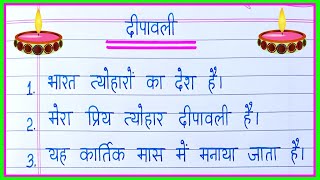 दीपावली
1. भारत त्योहारों का देश है।
2. मेरा प्रिय त्योहार दीपावली है।
3. यह कार्तिक मास में मनाया जाता है।